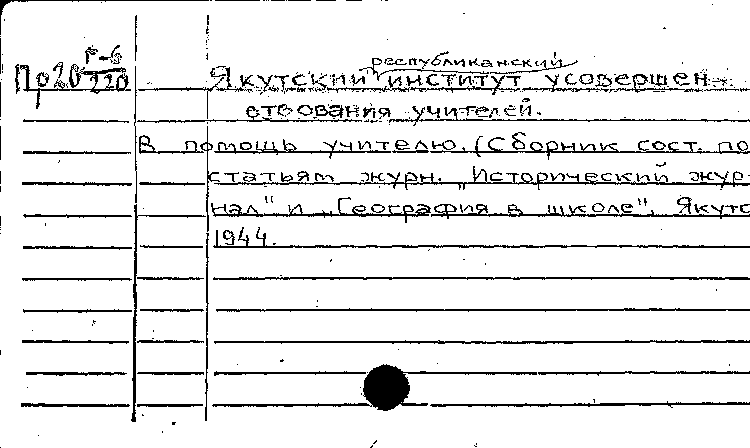 Пр20 Г-6/220
республиканский
Якутский институт усовершен-
ствования учителей.
В помощь учителю. (Сборник сост. по
статьям журн. „Исторический жур-
нал" и „География в школе". Якутс
1944.